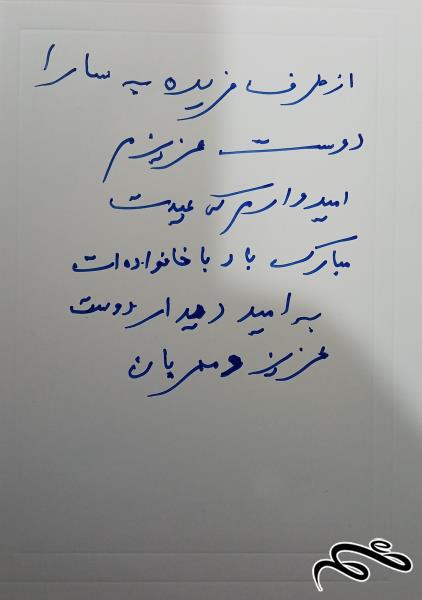 از طرف فریده به سارا
دوست عزیزم
امیدوارم که عیدت
مبارک باد با خانواده ات
به امید دیدار دوست
عزیز و مهربان